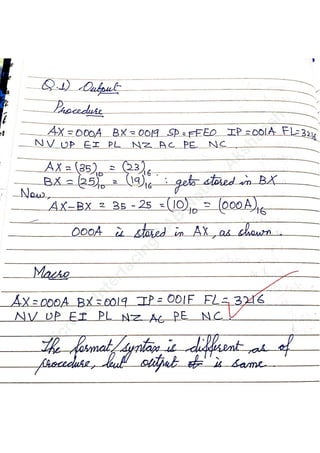 Q.1) Output
Procedure
AX=000A BX=0019 SP=FFE0 IP=001A FL=3216
NV UP EI PL NZ AC PE NC
AX=(35)10 = (23)16
BX=(25)10 = (19)16 : gets stored in BX
Now,
AX-BX = 35-25 = (10)10 = (000A)16
000A is stored in AX, as shown.
Macro
AX=000A BX=0019 IP=001F FL=3216
NV UP EI PL NZ AC PE NC
The format/syntax is different as of
procedure, but output is same.